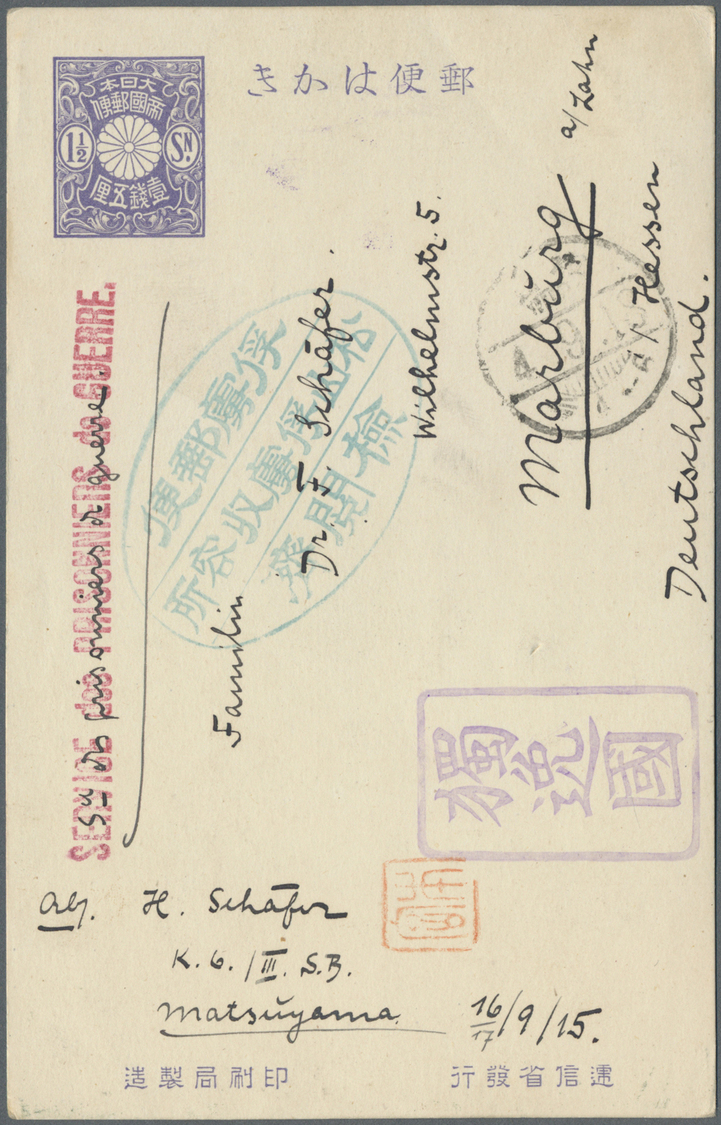 郵便はかき
大日本
帝國郵便
1½ SN.
壹錢五厘
SERVICE des PRISONNIERS de GUERRE.
Sce des prisonniers d guerre.
俘虜郵便
松山俘虜収容所
檢閲濟
Familie
Dr. F. Schäfer.
Wilhelmstr. 5.
Marburg
a/Lahn
Hessen
Deutschland.
獨逸國
Abs. H. Schäfer
K. 6. / III. S.B.
Matsuyama.
16/17/9/15.
印刷局製造
逓信省發行